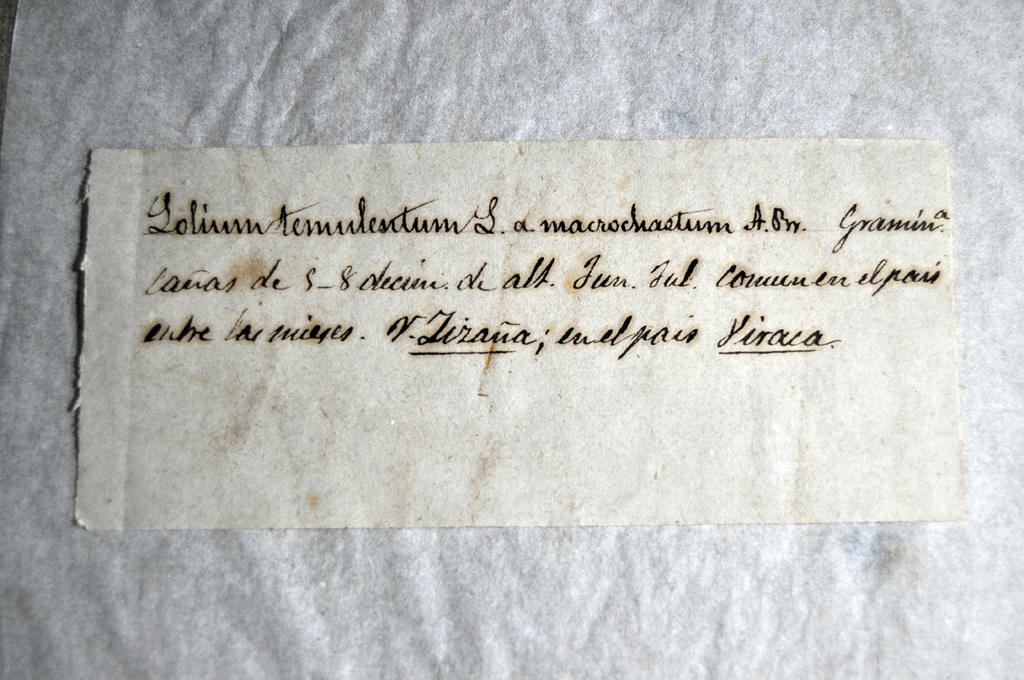 Lolium temulentum L. α macrochaetum A. Br. Gramin.ª
cañas de 5-8 decim. de alt. Jun. Jul. comun en el pais
entre las mieses. V. Zizaña; en el pais Viraca.